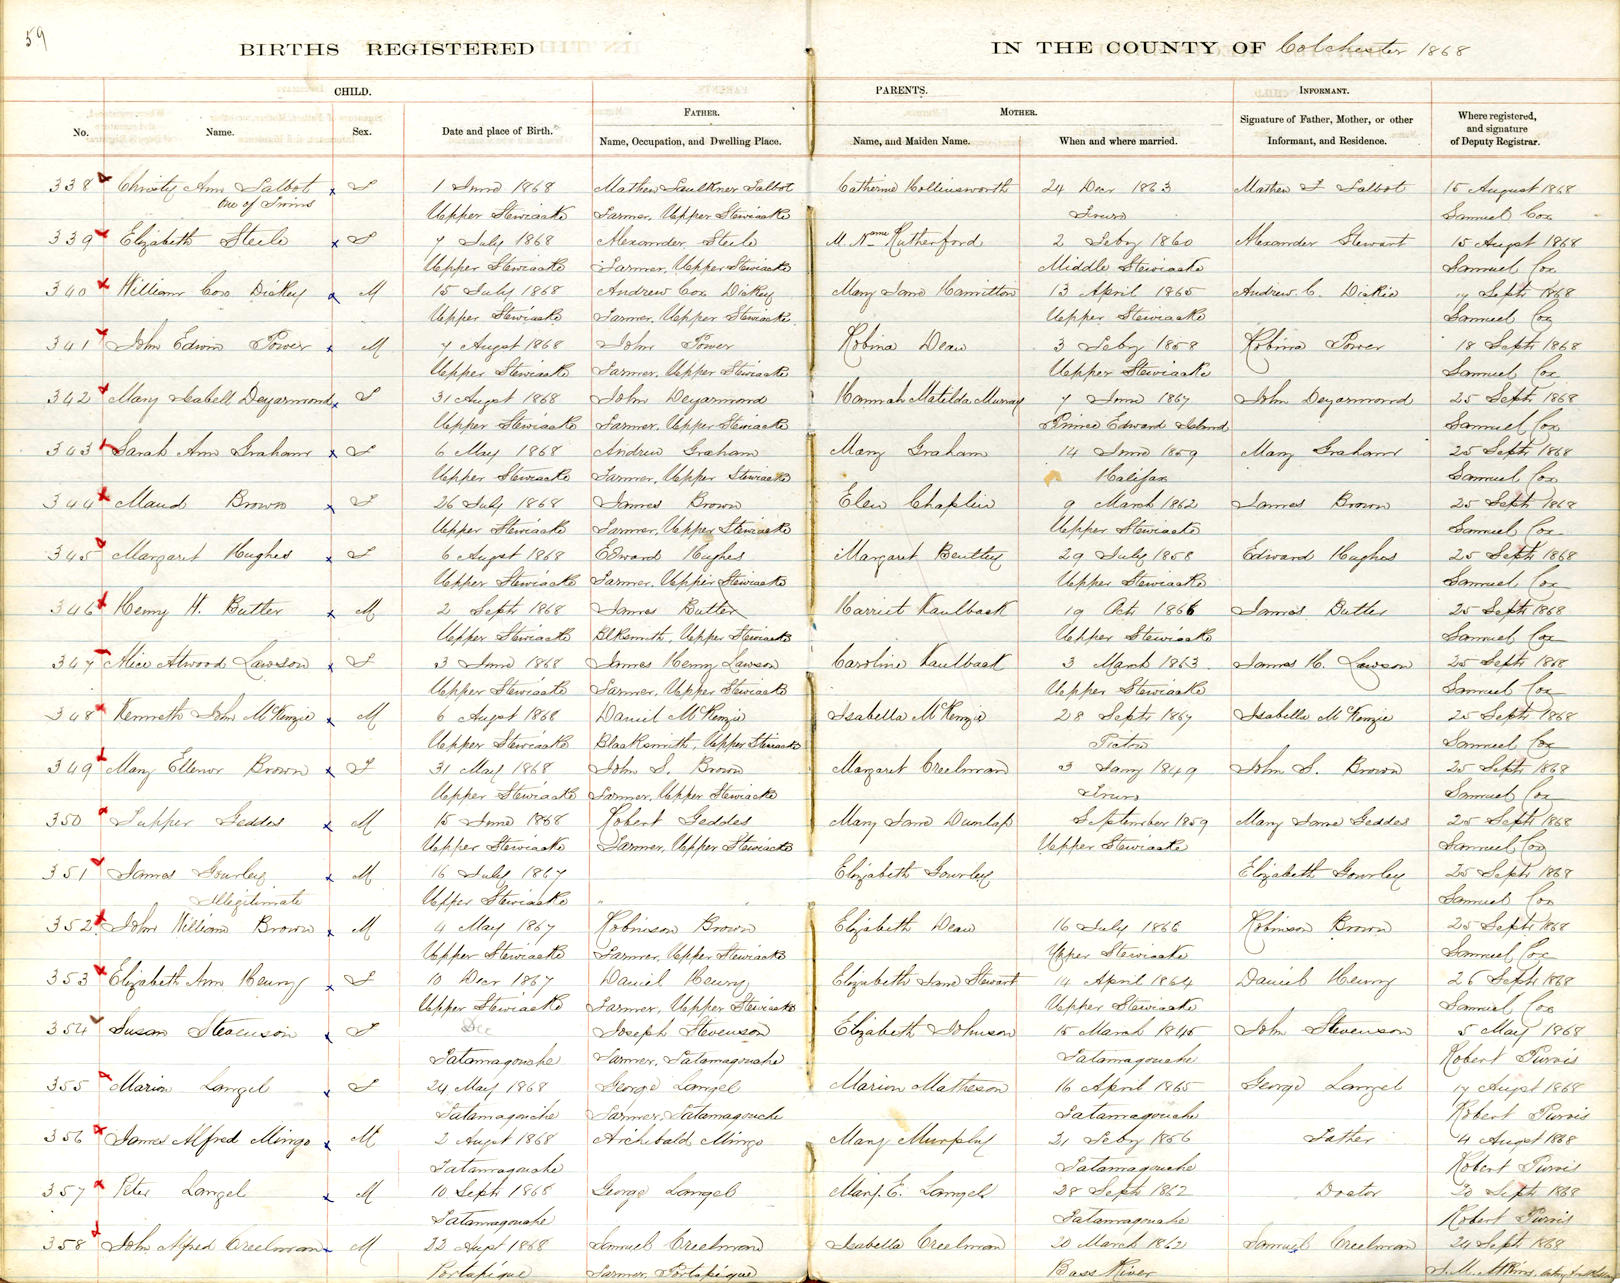 59
BIRTHS REGISTERED IN THE COUNTY OF Colchester 1868
CHILD. PARENTS. INFORMANT.
FATHER. MOTHER.
No. Name. Sex. Date and place of Birth. Name, Occupation, and Dwelling Place. Name, and Maiden Name. When and where married. Signature of Father, Mother, or other Informant, and Residence. Where registered, and signature of Deputy Registrar.
338 Christy Ann Talbot x F 1 June 1868 Mathew Faulkner Talbot Catherine Hollinsworth 24 Decr 1863 Mathew F Talbot 15 August 1868
One of Twins Upper Stewiacke Farmer, Upper Stewiacke Truro Samuel Cox
339 Elizabeth Steele x F 7 July 1868 Alexander Steele M. Name Rutherford 2 Feby 1860 Alexander Stewart 15 Augst 1868
Upper Stewiacke Farmer, Upper Stewiacke Middle Stewiacke Samuel Cox
340 William Cox Dickey x M 15 July 1868 Andrew Cox Dickey Mary Jane Hamilton 13 April 1865 Andrew C. Dickie 17 Septr 1868
Upper Stewiacke Farmer, Upper Stewiacke Upper Stewiacke Samuel Cox
341 John Edwin Power x M 7 Augst 1868 John Power Robina Dean 3 Feby 1858 Robina Power 18 Septr 1868
Upper Stewiacke Farmer, Upper Stewiacke Upper Stewiacke Samuel Cox
342 Mary Isabell Deyarmond x F 31 Augst 1868 John Deyarmond Hannah Matilda Murray 7 June 1867 John Deyarmond 25 Septr 1868
Upper Stewiacke Farmer, Upper Stewiacke Prince Edward Island Samuel Cox
343 Sarah Ann Graham x F 6 May 1868 Andrew Graham Mary Graham 14 June 1859 Mary Graham 25 Septr 1868
Upper Stewiacke Farmer, Upper Stewiacke Halifax Samuel Cox
344 Maud Brown x F 26 July 1868 James Brown Elen Chaplin 9 March 1862 James Brown 25 Septr 1868
Upper Stewiacke Farmer, Upper Stewiacke Upper Stewiacke Samuel Cox
345 Margaret Hughes x F 6 Augst 1868 Edward Hughes Margaret Bentley 29 July 1858 Edward Hughes 25 Septr 1868
Upper Stewiacke Farmer, Upper Stewiacke Upper Stewiacke Samuel Cox
346 Henry H. Butler x M 2 Septr 1868 James Butler Harriet Kaulback 19 Octr 1866 James Butler 25 Septr 1868
Upper Stewiacke Blksmith, Upper Stewiacke Upper Stewiacke Samuel Cox
347 Alice Atwood Lawson x F 3 June 1868 James Henry Lawson Caroline Kaulback 3 March 1863 James H. Lawson 25 Septr 1868
Upper Stewiacke Farmer, Upper Stewiacke Upper Stewiacke Samuel Cox
348 Kenneth John McKenzie x M 6 Augst 1868 Daniel McKenzie Isabella McKenzie 28 Septr 1867 Isabella McKenzie 25 Septr 1868
Upper Stewiacke Blacksmith, Upper Stewiacke Pictou Samuel Cox
349 Mary Ellenor Brown x F 31 May 1868 John S. Brown Margaret Creelman 3 Jany 1849 John S. Brown 25 Septr 1868
Upper Stewiacke Farmer, Upper Stewiacke Truro Samuel Cox
350 Tupper Geddes x M 15 June 1868 Robert Geddes Mary Jane Dunlap September 1859 Mary Jane Geddes 25 Septr 1868
Upper Stewiacke Farmer, Upper Stewiacke Upper Stewiacke Samuel Cox
351 James Gourley x M 16 July 1867 Elizabeth Gourley Elizabeth Gourley 25 Septr 1868
Illegitimate Upper Stewiacke " Samuel Cox
352 John William Brown x M 4 May 1867 Robinson Brown Elizabeth Dean 16 July 1866 Robinson Brown 25 Septr 1868
Upper Stewiacke Farmer, Upper Stewiacke Upper Stewiacke Samuel Cox
353 Elizabeth Ann Henry x F 10 Decr 1867 Daniel Henry Elizabeth Jane Stewart 14 April 1864 Daniel Henry 26 Septr 1868
Upper Stewiacke Farmer, Upper Stewiacke Upper Stewiacke Samuel Cox
354 Susan Stevenson x F Dec Joseph Stevenson Elizabeth Johnson 15 March 1845 John Stevenson 5 May 1868
Tatamagouche Farmer, Tatamagouche Tatamagouche Robert Purvis
355 Marion Langel x F 24 May 1868 George Langel Marion Matheson 16 April 1865 George Langel 17 Augst 1868
Tatamagouche Farmer, Tatamagouche Tatamagouche Robert Purvis
356 James Alfred Mingo x M 2 Augst 1868 Archibald Mingo Mary Murphy 21 Feby 1856 Father 4 Augst 1868
Tatamagouche Tatamagouche Robert Purvis
357 Peter Langel x M 10 Septr 1868 George Langel Mary. E. Langel 28 Septr 1862 Doctor 30 Septr 1868
Tatamagouche Tatamagouche Robert Purvis
358 John Alfred Creelman x M 22 Augst 1868 Samuel Creelman Isabella Creelman 20 March 1862 Samuel Creelman 24 Septr 1868
Portapique Farmer, Portapique Bass River